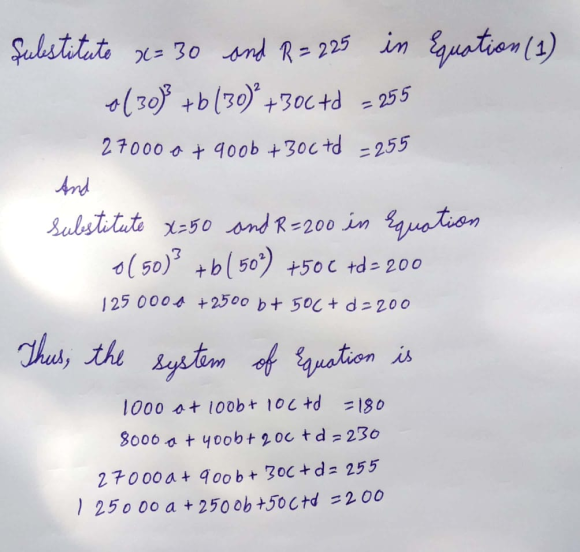 Substitute x = 30 and R = 225 in Equation (1)
a(30)³ + b(30)² + 30c + d = 255
27000 a + 900b + 30c + d = 255
And
Substitute x = 50 and R = 200 in Equation
a(50)³ + b(50²) + 50c + d = 200
125 000a + 2500 b + 50c + d = 200
Thus, the system of Equation is
1000 a + 100b + 10c + d = 180
8000 a + 400b + 20c + d = 230
27000a + 900b + 30c + d = 255
1 250 00 a + 2500b + 50c + d = 200